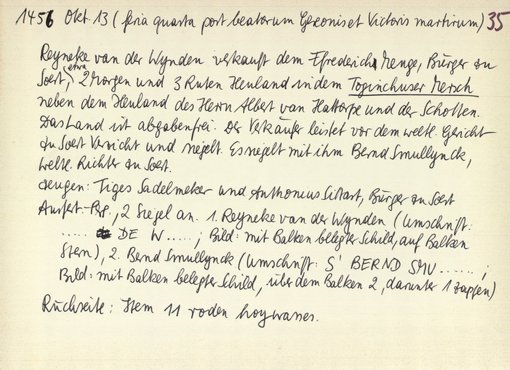 1456 Okt. 13 (feria quarta post beatorum Gereonis et Victoris martirum) 35
Reyneke van der Wynden verkauft dem Efrederich Menge, Bürger zu
Soest, etwa 2 Morgen und 3 Ruten Heuland in dem Toginchuser Mersch
neben dem Heuland des Herrn Albert van Hattorpe und der Schotten.
Das Land ist abgabenfrei. Der Verkäufer leistet vor dem weltl. Gericht
zu Soest Verzicht und siegelt. Es siegelt mit ihm Bernd Smullynck,
weltl. Richter zu Soest.
Zeugen: Tiges Sadelmeker und Anthonius Sittart, Bürger zu Soest
Ausfert.-Pg., 2 Siegel an. 1. Reyneke van der Wynden (Umschrift:
..... DE W.....; Bild: mit Balken belegter Schild, auf Balken
Stern), 2. Bernd Smullynck (Umschrift: S' BERND SMU......;
Bild: mit Balken belegter Schild, über dem Balken 2, darunter 1 Zapfen)
Rückseite: Item 11 roden hoywasses.